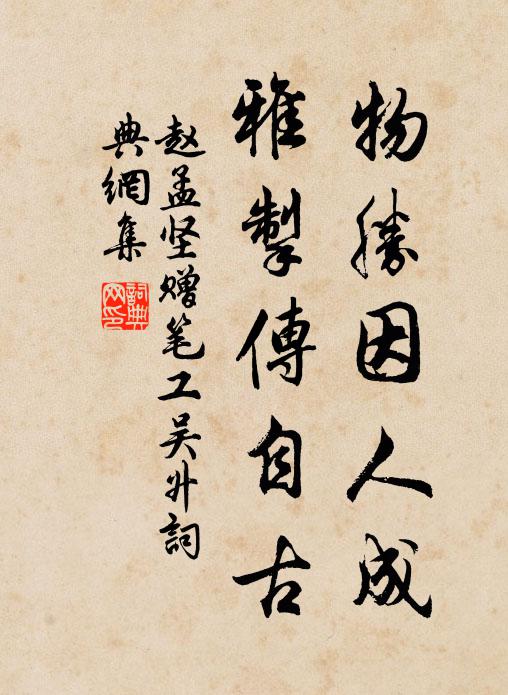 物勝因人成
雅掣傳自古
赵孟坚赠笔工吴升詞
典網集
詞典
网印